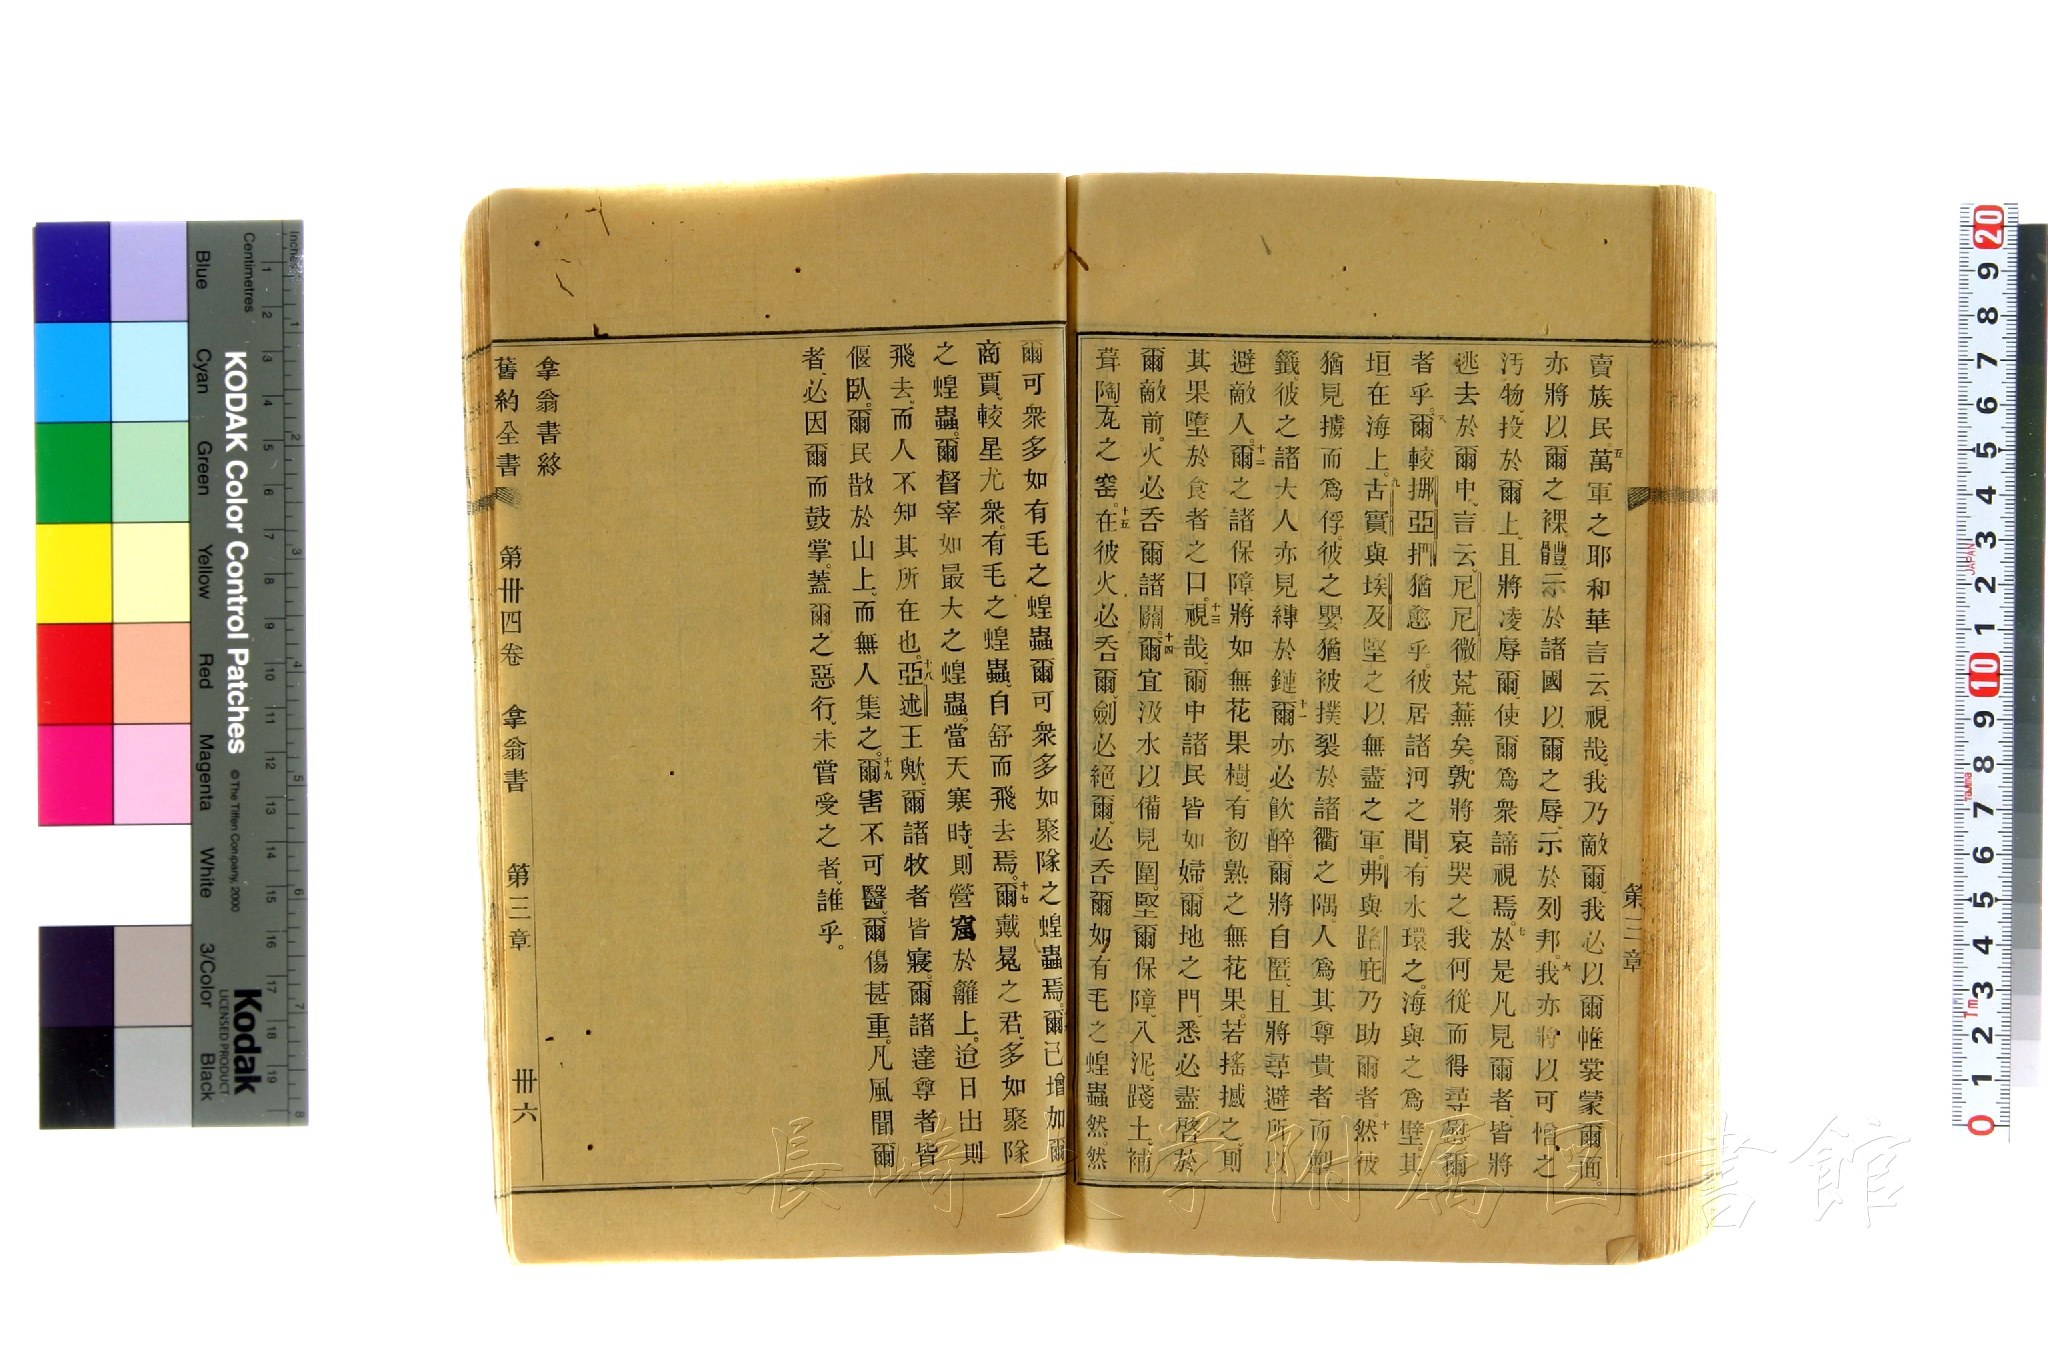 賣族民。五萬軍之耶和華言云視哉、我乃敵爾、我必以爾帷裳蒙爾面。
亦將以爾之裸體、示於諸國、以爾之辱、示於列邦。六我亦將以可憎之
汚物、投於爾上、且將凌辱爾、使爾爲衆諦視焉。七於是凡見爾者、皆將
逃去於爾中、言云、尼尼微荒蕪矣、孰將哀哭之、我何從而得尋慰爾
者乎。八爾較挪亞捫猶愈乎、彼居諸河之間、有水環之、海與之爲壁、其
垣在海上。九古實與埃及堅之以無盡之軍。弗與路庇乃助爾者、十然彼
猶見擄而爲俘。彼之嬰猶被撲裂於諸衢之隅、人爲其尊貴者而掣
籤、彼之諸大人亦見縛於鏈。十一爾亦必飮醉。爾將自匿、且將尋避所以
避敵人。十二爾之諸保障、將如無花果樹、有初熟之無花果。若搖撼之、則
其果墮於食者之口。十三視哉、爾中諸民皆如婦。爾地之門、悉必盡啓於
爾敵前。火必呑爾諸關。十四爾宜汲水以備見圍。堅爾保障、入泥、踐土、補
葺陶瓦之窰。十五在彼火必呑爾、劍必絕爾、必呑爾如有毛之蝗蟲然。然
第三章
爾可衆多如有毛之蝗蟲、爾可衆多如聚隊之蝗蟲焉。爾已增加爾
商賈、較星尤衆。有毛之蝗蟲、自舒而飛去焉。十七爾戴冕之君、多如聚隊
之蝗蟲。爾督宰如最大之蝗蟲。當天寒時、則營窟於籬上。迨日出則
飛去、而人不知其所在也。十八亞述王歟、爾諸牧者皆寢。爾諸達尊者皆
偃臥。爾民散於山上。而無人集之。十九爾害不可醫、爾傷甚重。凡風聞爾
者、必因爾而鼓掌。蓋爾之惡行、未嘗受之者、誰乎。
拿翁書終
舊約全書 第卅四卷 拿翁書 第三章 卅六
長崎大学附属図書館
Inches
Centimetres
Blue Cyan Green Yellow Red Magenta White 3/Color Black
KODAK Color Control Patches
©The Tiffen Company, 2000
Kodak
LICENSED PRODUCT
1 2 3 4 5 6 7 8 9 10 11 12 13 14 15 16 17 18 19
1 2 3 4 5 6 7 8
20 9 8 7 6 5 4 3 2 1 10 9 8 7 6 5 4 3 2 1 0
JAPAN